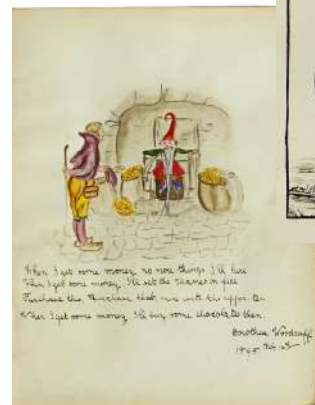 When I get some money no more things I'll hire
When I get some money I'll set the Thames on fire
Purchase this, Purchase that mix with the upper ten
When I get some money I'll buy some chocolates then.
Dorothea Woodruff